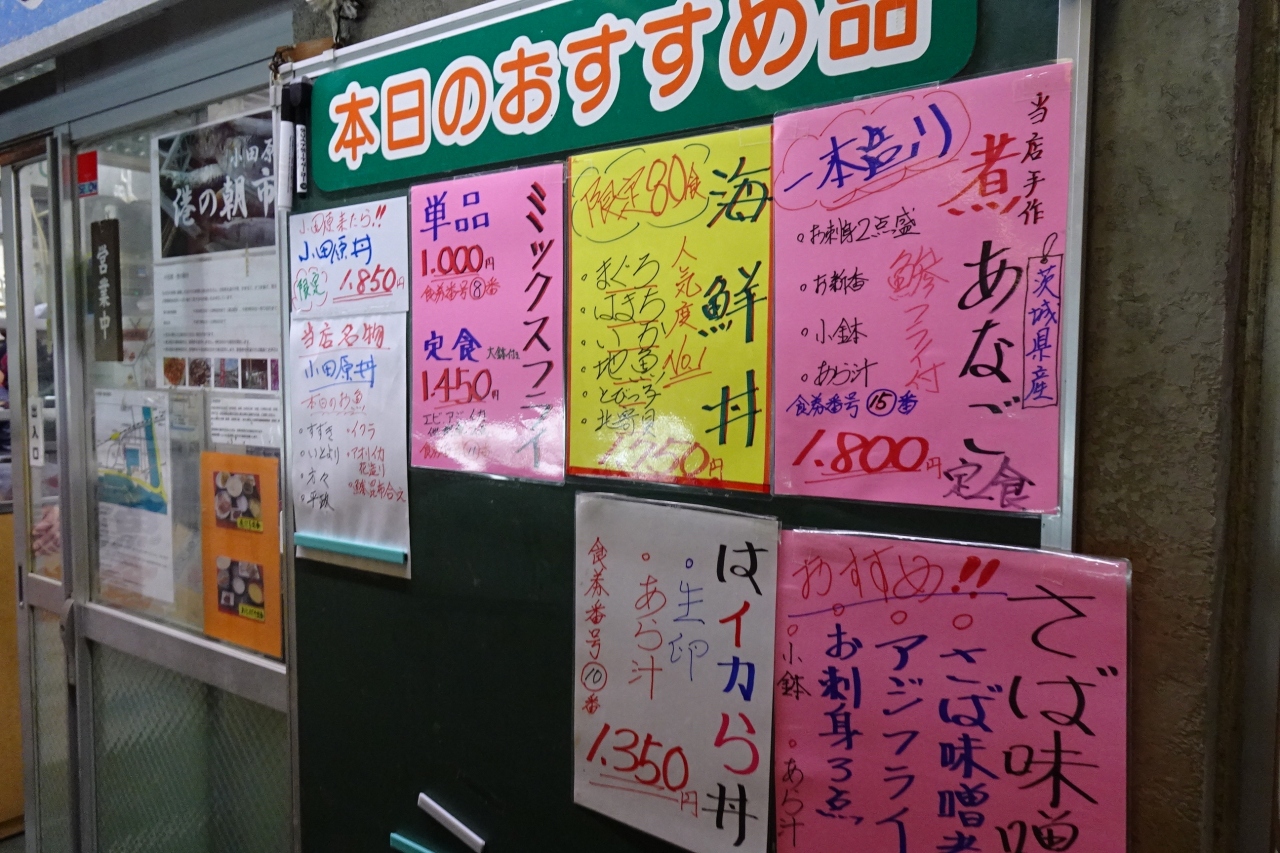 本日のおすすめ品
小田原
港の朝市
営業中
入口
小田原来たら!!
小田原丼
限定
1.850円
当店名物
小田原丼
本日のお魚
・すずき
・いとより
・方々
・平政
・イクラ
・アオリイカ
花造り
・鯵昆布合え
ミックスフライ
単品
1.000円
食券番号⑧番
定食 大鉢付
1.450円
海鮮丼
限定80食
人気度No.1
・まぐろ
・はまち
・いか
・地魚
・とびっ子
・北寄貝
当店手作
煮あなご定食
茨城県産
一本造り
お刺身2点盛
お新香
小鉢
あら汁
鯵フライ付
食券番号⑮番
1.800円
はイカら丼
生卵
あら汁
食券番号⑩番
1.350円
さば味噌
おすすめ!!
さば味噌煮
アジフライ
お刺身3点
小鉢
あら汁